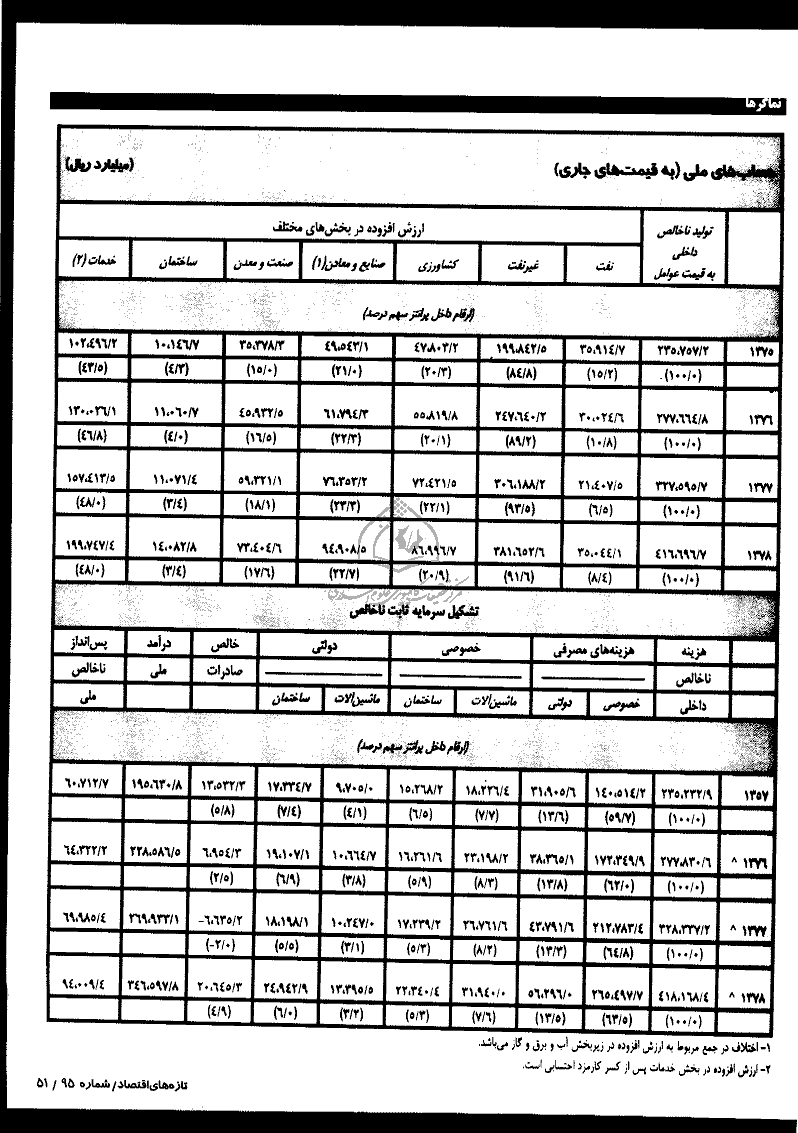 نماگرها
حساب‌های ملی (به قیمت‌های جاری) (میلیارد ریال)
تولید ناخالص داخلی به قیمت عوامل
ارزش افزوده در بخش‌های مختلف
نفت غیرنفت کشاورزی صنایع و معادن(۱) صنعت و معدن ساختمان خدمات (۲)
(ارقام داخل پرانتز سهم درصد)
۱۳۷۵ ۲۳۵،۷۵۷/۲ ۳۵،۹۱۴/۷ ۱۹۹،۸۴۲/۵ ۴۷،۸۰۳/۲ ۴۹،۵۴۳/۱ ۳۵،۳۷۸/۳ ۱۰،۱۴۶/۷ ۱۰۲،۴۹۶/۲
(۱۰۰/۰) (۱۵/۲) (۸۴/۸) (۲۰/۳) (۲۱/۰) (۱۵/۰) (۴/۳) (۴۳/۵)
۱۳۷۶ ۲۷۷،۶۶۴/۸ ۳۰،۰۲۴/۶ ۲۴۷،۶۴۰/۲ ۵۵،۸۱۹/۸ ۶۱،۷۹۴/۳ ۴۵،۹۳۲/۵ ۱۱،۰۶۰/۷ ۱۳۰،۰۳۶/۱
(۱۰۰/۰) (۱۰/۸) (۸۹/۲) (۲۰/۱) (۲۲/۳) (۱۶/۵) (۴/۰) (۴۶/۸)
۱۳۷۷ ۳۲۷،۵۹۵/۷ ۲۱،۴۰۷/۵ ۳۰۶،۱۸۸/۲ ۷۲،۴۲۱/۵ ۷۶،۳۵۳/۲ ۵۹،۳۲۱/۱ ۱۱،۰۷۱/۴ ۱۵۷،۴۱۳/۵
(۱۰۰/۰) (۶/۵) (۹۳/۵) (۲۲/۱) (۲۳/۳) (۱۸/۱) (۳/۴) (۴۸/۰)
۱۳۷۸ ۴۱۶،۶۹۶/۷ ۳۵،۰۴۴/۱ ۳۸۱،۶۵۲/۶ ۸۶،۹۹۶/۷ ۹۴،۹۰۸/۵ ۷۳،۴۰۴/۶ ۱۴،۰۸۲/۸ ۱۹۹،۷۴۷/۴
(۱۰۰/۰) (۸/۴) (۹۱/۶) (۲۰/۹) (۲۲/۷) (۱۷/۶) (۳/۴) (۴۸/۰)
تشکیل سرمایه ثابت ناخالص
هزینه هزینه‌های مصرفی خصوصی دولتی خالص درآمد پس‌انداز
ناخالص صادرات ملی ناخالص
داخلی خصوصی دولتی ماشین‌آلات ساختمان ماشین‌آلات ساختمان ملی
(ارقام داخل پرانتز سهم درصد)
۱۳۵۷ ۲۳۵،۲۳۲/۹ ۱۴۰،۵۱۴/۲ ۳۱،۹۰۵/۶ ۱۸،۲۳۶/۴ ۱۵،۲۶۸/۲ ۹،۷۰۵/۰ ۱۷،۳۳۴/۷ ۱۳،۵۳۲/۳ ۱۹۵،۶۳۰/۸ ۶۰،۷۱۲/۷
(۱۰۰/۰) (۵۹/۷) (۱۳/۶) (۷/۷) (۶/۵) (۴/۱) (۷/۴) (۵/۸)
۱۳۷۶ ^ ۲۷۷،۸۳۰/۶ ۱۷۲،۳۴۹/۹ ۳۸،۳۶۵/۱ ۲۳،۱۹۸/۲ ۱۶،۲۶۱/۶ ۱۰،۶۶۴/۷ ۱۹،۱۰۷/۱ ۶،۹۵۴/۳ ۲۲۸،۵۸۶/۵ ۶۴،۳۲۲/۲
(۱۰۰/۰) (۶۲/۰) (۱۳/۸) (۸/۳) (۵/۹) (۳/۸) (۶/۹) (۲/۵)
۱۳۷۷ ^ ۳۲۸،۳۳۷/۲ ۲۱۲،۷۸۳/۴ ۴۳،۷۹۱/۶ ۲۶،۷۶۱/۶ ۱۷،۲۳۹/۲ ۱۰،۲۴۷/۰ ۱۸،۱۹۸/۱ ۶،۶۳۵/۲- ۲۶۹،۹۳۳/۱ ۶۹،۹۸۵/۴
(۱۰۰/۰) (۶۴/۸) (۱۳/۳) (۸/۲) (۵/۳) (۳/۱) (۵/۵) (-۲/۰)
۱۳۷۸ ^ ۴۱۸،۱۶۸/۴ ۲۶۵،۴۹۷/۷ ۵۶،۲۹۶/۰ ۳۱،۹۴۰/۰ ۲۲،۳۴۰/۴ ۱۳،۳۹۵/۵ ۲۴،۹۴۲/۹ ۲۰،۶۴۵/۳ ۳۴۶،۵۹۷/۸ ۹۴،۰۰۹/۴
(۱۰۰/۰) (۶۳/۵) (۱۳/۵) (۷/۶) (۵/۳) (۳/۲) (۶/۰) (۴/۹)
۱- اختلاف در جمع مربوط به ارزش افزوده در زیربخش آب و برق و گاز می‌باشد.
۲- ارزش افزوده در بخش خدمات پس از کسر کارمزد احتسابی است.
تازه‌های‌اقتصاد/ شماره ۹۵ / ۵۱